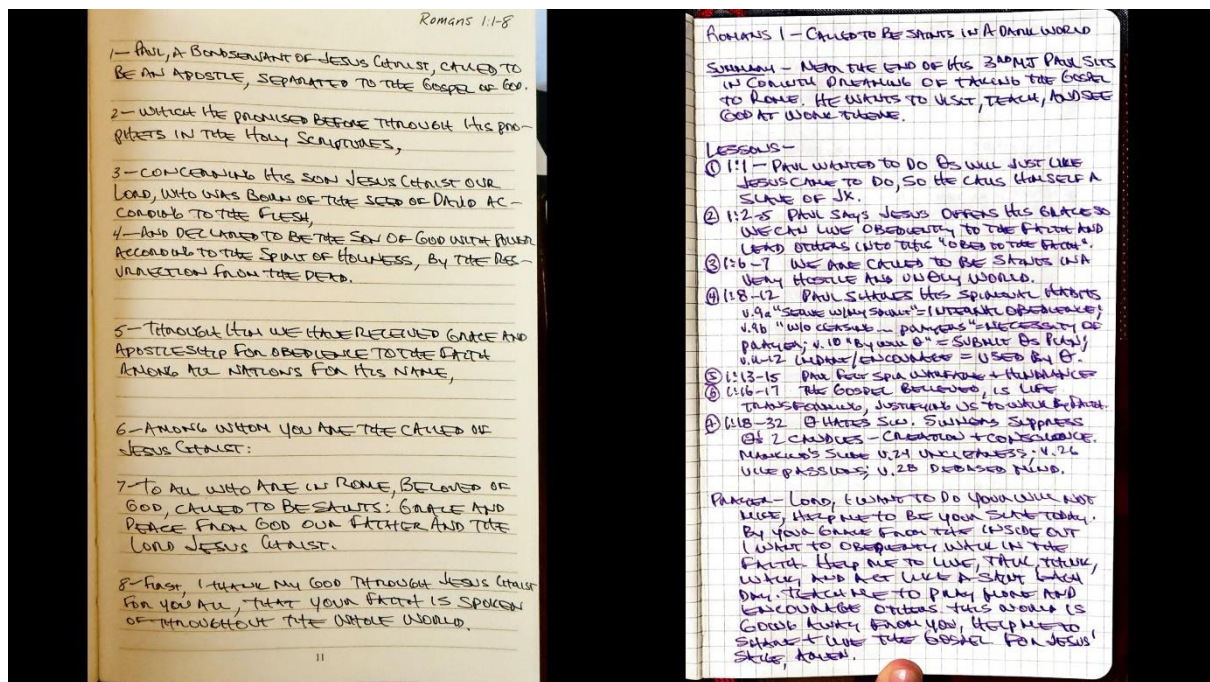 Romans 1:1-8
1- PAUL, A BONDSERVANT OF JESUS CHRIST, CALLED TO
BE AN APOSTLE, SEPARATED TO THE GOSPEL OF GOD.
2- WHICH HE PROMISED BEFORE THROUGH HIS PRO-
PHETS IN THE HOLY SCRIPTURES,
3- CONCERNING HIS SON JESUS CHRIST OUR
LORD, WHO WAS BORN OF THE SEED OF DAVID AC-
CORDING TO THE FLESH,
4- AND DECLARED TO BE THE SON OF GOD WITH POWER
ACCORDING TO THE SPIRIT OF HOLINESS, BY THE RES-
URRECTION FROM THE DEAD.
5- THROUGH HIM WE HAVE RECEIVED GRACE AND
APOSTLESHIP FOR OBEDIENCE TO THE FAITH
AMONG ALL NATIONS FOR HIS NAME,
6- AMONG WHOM YOU ARE THE CALLED OF
JESUS CHRIST:
7- TO ALL WHO ARE IN ROME, BELOVED OF
GOD, CALLED TO BE SAINTS: GRACE AND
PEACE FROM GOD OUR FATHER AND THE
LORD JESUS CHRIST.
8- FIRST, I THANK MY GOD THROUGH JESUS CHRIST
FOR YOU ALL, THAT YOUR FAITH IS SPOKEN
OF THROUGHOUT THE WHOLE WORLD.
11
ROMANS 1 - CALLED TO BE SAINTS IN A DARK WORLD
SUMMARY - NEAR THE END OF HIS 3RD MJ PAUL SITS
IN CORINTH DREAMING OF TAKING THE GOSPEL
TO ROME. HE WANTS TO VISIT, TEACH, AND SEE
GOD AT WORK THERE.
LESSONS -
① 1:1 - PAUL WANTED TO DO Θs WILL JUST LIKE
JESUS CAME TO DO, SO HE CALLS HIMSELF A
SLAVE OF JX.
② 1:2-5 PAUL SAYS JESUS OFFERS HIS GRACE SO
WE CAN LIVE OBEDIENTLY TO THE FAITH AND
LEAD OTHERS INTO THIS "OBED TO THE FAITH".
③ 1:6-7 WE ARE CALLED TO BE SAINTS IN A
VERY HOSTILE AND UNHOLY WORLD.
④ 1:8-12 PAUL SHARES HIS SPIRITUAL HABITS
v.9a "SERVE W/MY SPIRIT" = INTERNAL OBEDIENCE;
v.9b "W/O CEASING - PRAYERS" = NECESSITY OF
PRAYER; v.10 "BY WILL Θ" = SUBMIT Θs PLAN;
v.11-12 IMPART/ENCOURAGE = USED BY Θ.
⑤ 1:13-15 PAUL FELT SPIR WARFARE + HINDRANCE
⑥ 1:16-17 THE GOSPEL BELIEVED, IS LIFE
TRANSFORMING, JUSTIFYING US TO WALK BY FAITH.
⑦ 1:18-32 Θ HATES SIN. SINNERS SUPPRESS
Θs 2 CANDLES - CREATION + CONSCIENCE.
MANKIND'S SLIDE v.24 UNCLEANESS; v.26
VILE PASSIONS; v.28 DEBASED MIND.
PRAYER - LORD, I WANT TO DO YOUR WILL NOT
MINE, HELP ME TO BE YOUR SLAVE TODAY.
BY YOUR GRACE FROM THE INSIDE OUT
I WANT TO OBEDIENTLY WALK IN THE
FAITH. HELP ME TO LIVE, TALK, THINK,
WALK, AND ACT LIKE A SAINT EACH
DAY. TEACH ME TO PRAY MORE AND
ENCOURAGE OTHERS. THIS WORLD IS
GOING AWAY FROM YOU, HELP ME TO
SHARE + LIVE THE GOSPEL FOR JESUS'
SAKE, AMEN.